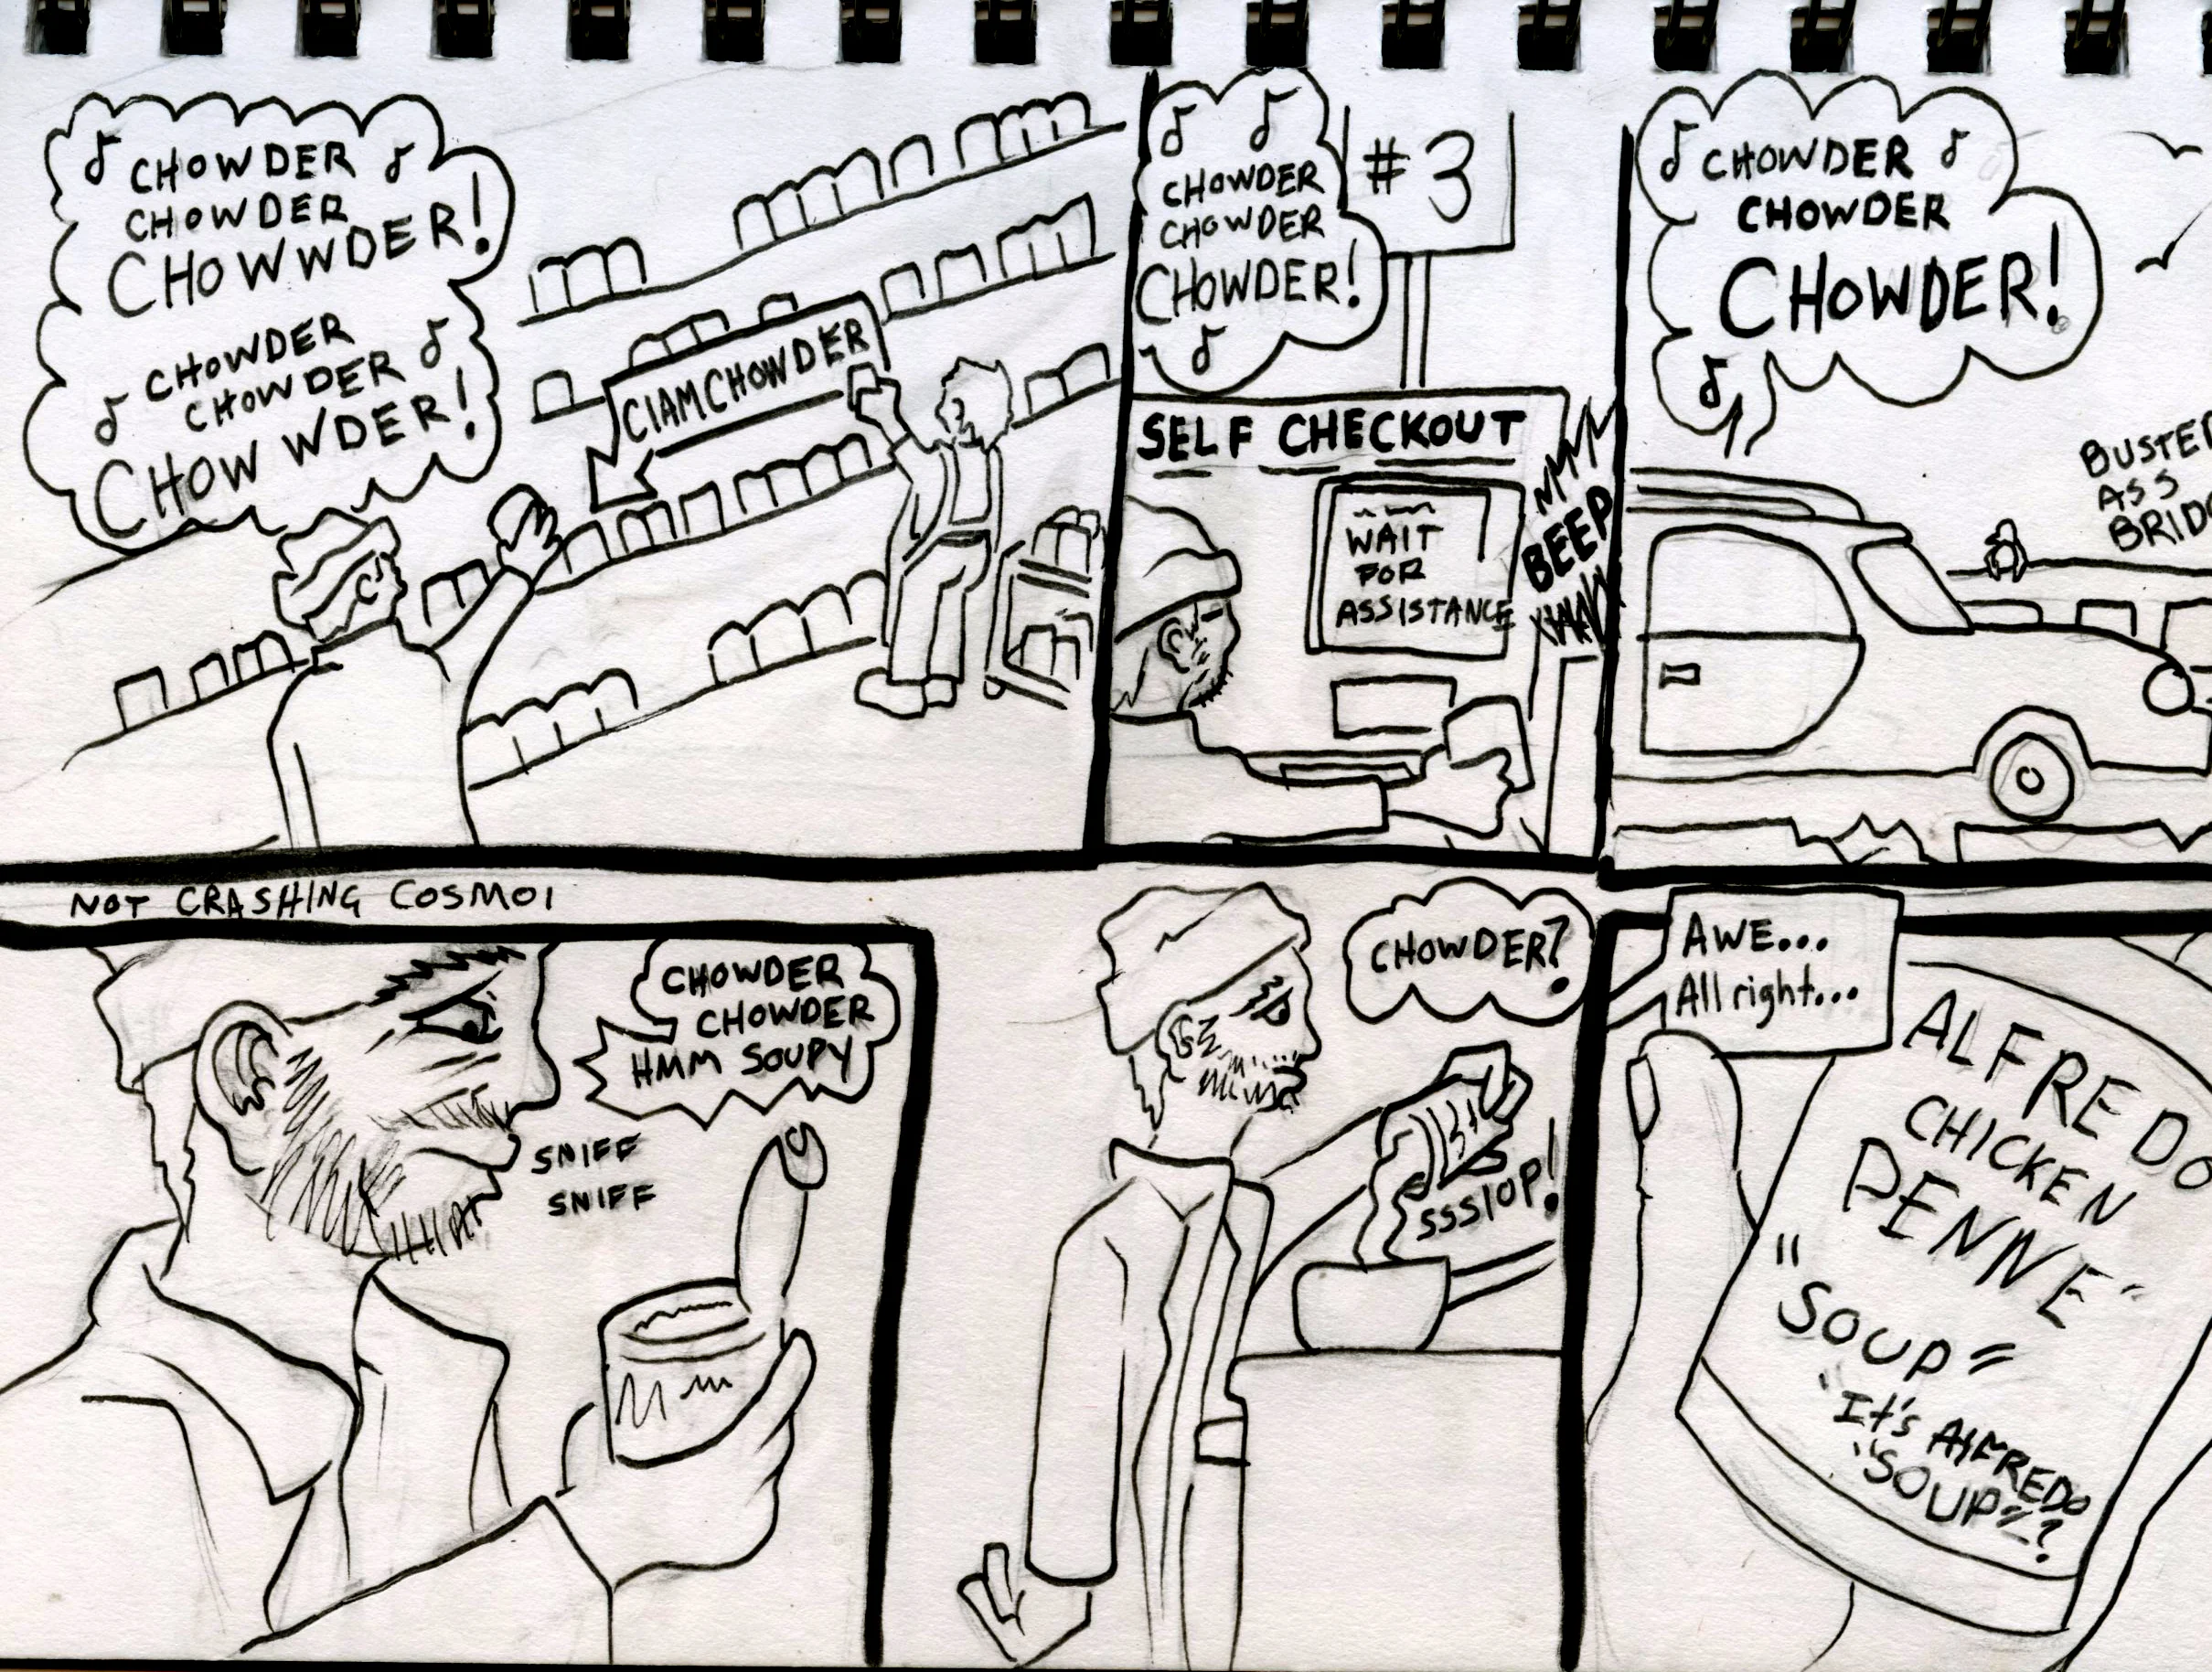 CHOWDER
CHOWDER
CHOWWDER!
CHOWDER
CHOWDER
CHOWWDER!
ClAMCHOWDER
CHOWDER
CHOWDER
CHOWDER!
#3
SELF CHECKOUT
WAIT
FOR
ASSISTANCE
BEEP
CHOWDER
CHOWDER
CHOWDER!
BUSTED
ASS
BRIDG
NOT CRASHING COSMOI
CHOWDER
CHOWDER
HMM SOUPY
SNIFF
SNIFF
CHOWDER?
SSSlOP!
AWE...
All right...
ALFREDO
CHICKEN
PENNE"
"SOUP"
"It's AlFREDO
"SOUP"?